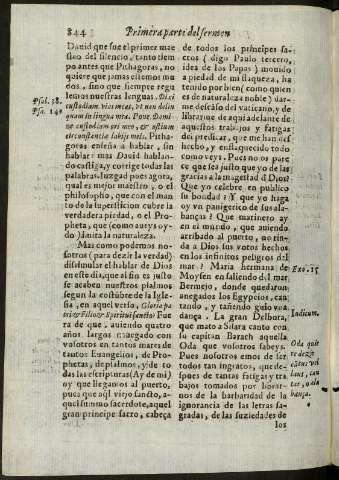 844
Primera parte del sermon
Dauid que fue el primer mae
stro del silencio, tanto tiem
po antes que Pithagoras, no
quiere que jamas estemos mu
dos, sino que siempre regu
lemos nuestras lenguas. Dixi
custodiam vias meas, vt non delin
quam in lingua mea. Pone Domi-
ne custodiam ori meo, & ostium
circunstantiæ labijs meis. Pitha-
goras enseña a hablar, sin
hablar: mas Dauid hablan-
do castiga, y corrige todas las
palabras. Iuzgad pues agora,
qual es mejor maestro, o el
philosopho, que con el man
to de la supersticion cubre la
verdadera piedad, o el Pro-
pheta, que (como aueys oy-
do) imita la naturaleza.
Mas como podemos no-
sotros (para dezir la verdad)
dissimular el hablar de Dios
en este dia, que al sin es justo
se acaben nuestros psalmos
segun la costumbre de la Igle-
sia, en aquel verso, Gloria pa-
tri & Filio & Spiritui sancto: Fue
ra de que, auiendo quatro
años largos nauegado con
vosotros en tantos mares de
tantos Euangelios, de Pro-
phetas, de psalmos, y de to
das las escripturas (Ay de mi)
oy que llegamos al puerto,
pues que aql viejo sancto, a-
quel summo sacerdote, aquel
gran principe sacro, cabeça
Psal. 38.
Psa. 140
de todos los principes sa-
cros (digo Paulo tercero,
idea de los Papas) mouido
a piedad de mi flaqueza, ha
tenido por bien (como quien
es de naturaleza noble) dar-
me descãso del vaticano, y de
librarme de aqui adelante de
aquellos trabajos y fatigas
del predicar, que me han des
hecho, y enflaquecido todo
como veys. Pues no os pare
ce que sea justo que yo de las
gracias a la magestad d Dios?
Que yo celebre en publico
su bondad? Y que yo haga
oy vn panigerico de sus ala-
banças? Que marinero ay
en el mundo, que auiendo
arribado al puerto, no rin-
da a Dios sus votos hechos
en los infinitos peligros del
mar? Maria hermana de
Moysen en saliendo del mar
Bermejo, donde quedaron
anegados los Egypcios, can-
tando, y tañendo guio vna
dança. La gran Delbora,
que mato a Sisara canto con
su capitan Barach aquella
Oda que vosotros sabeys.
Pues nosotros emos de ser
todos tan ingratos, que de-
spues de tantas fatigas y tra
bajos tomados por borrar-
nos de la barbaridad de la
ignorancia de las letras sa-
gradas, de las suziedades de
los
Exo. 15
Iudicum.
Oda quie
re dezir